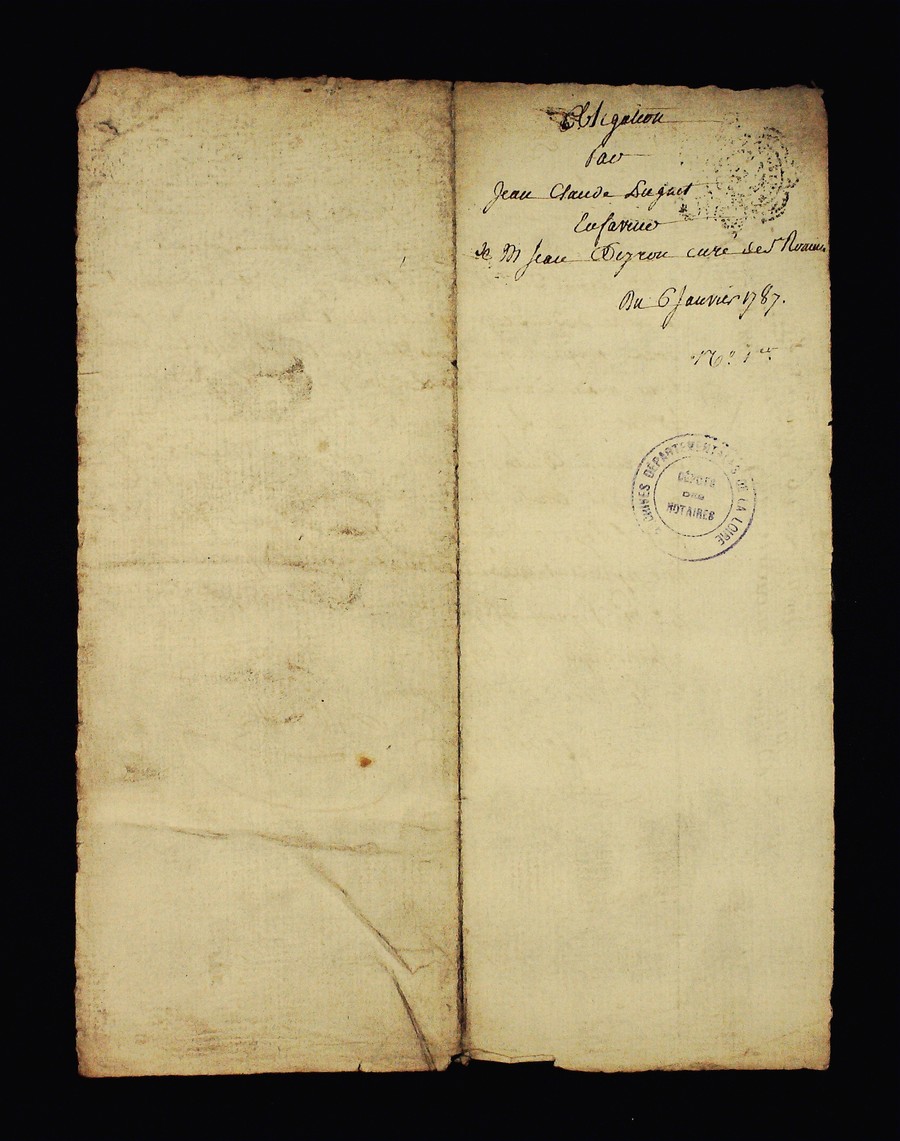 obligation
Par
Jean Claude Duguet
En faveur
de M Jean Peyron curé de St Romain
Du 6 Janvier 1787.
N° 1er
ARCHIVES DÉPARTEMENTALES DE LA LOIRE
DÉPOTS
DES
NOTAIRES